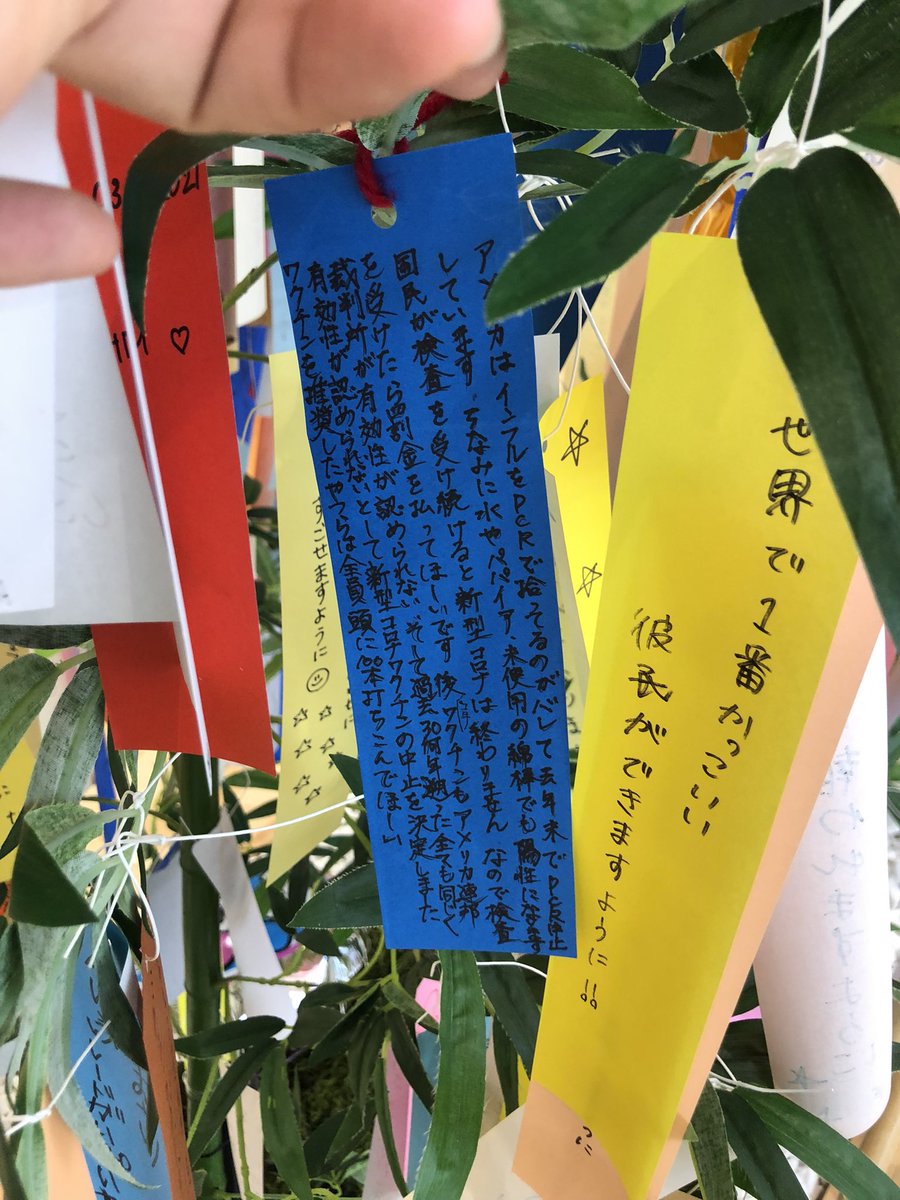 世界で1番かっこいい
彼民ができますように!!
アメリカはインフルをPCRで拾そるのがバレて去年末でPCR停止
しています。ちなみに水やパパイア、未使用の綿棒でも陽性になります
国民が検査を受け続けると新型コロナは終わりません なので検査
を受けたら罰金を払ってほしいです 後、ワクチンもアメリカ連邦
裁判所が有効性が認められない そして過去30何年遡った全ても同じく
有効性が認められないとして新型コロナワクチンの中止を決定しました
ワクチンを推奨したやつらは全員頭に100本打ちこんでほしい
すごせますように